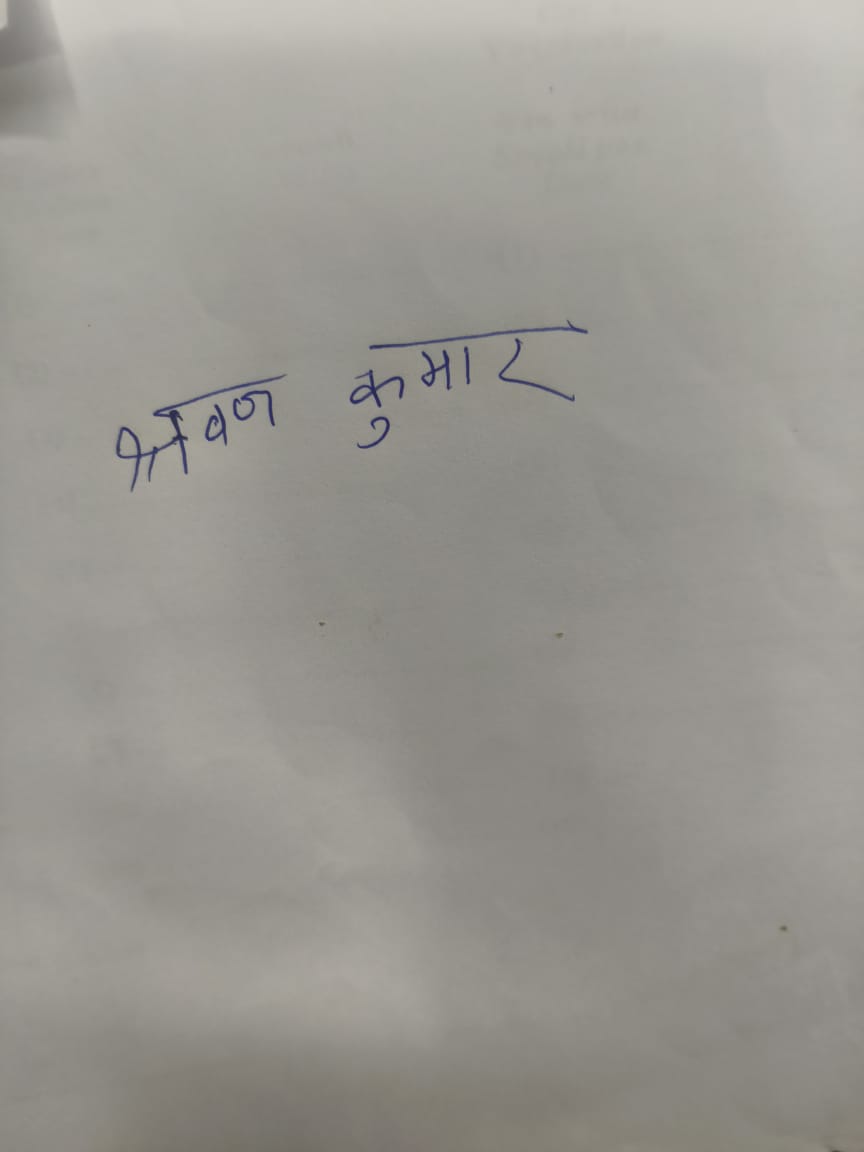 श्रवण कुमार